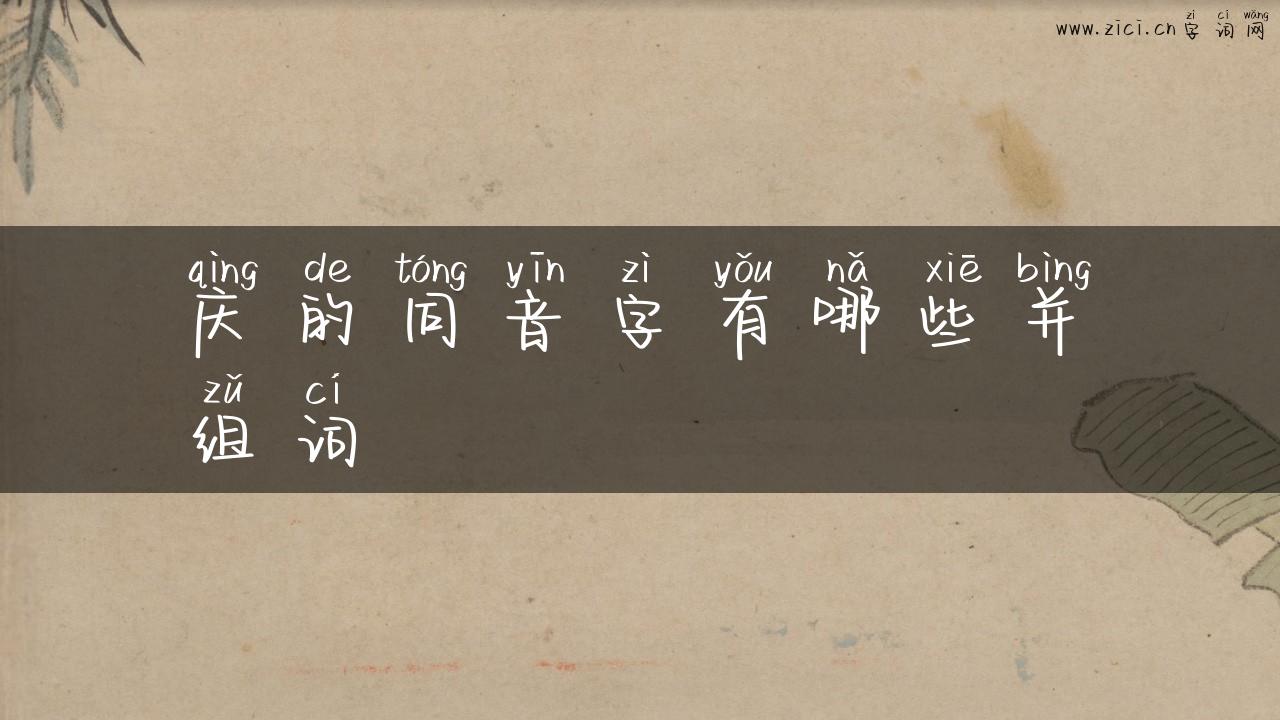 zì cí wǎng
www.zici.cn 字词网
qìng de tóng yīn zì yǒu nǎ xiē bìng
庆的同音字有哪些并
zǔ cí
组词